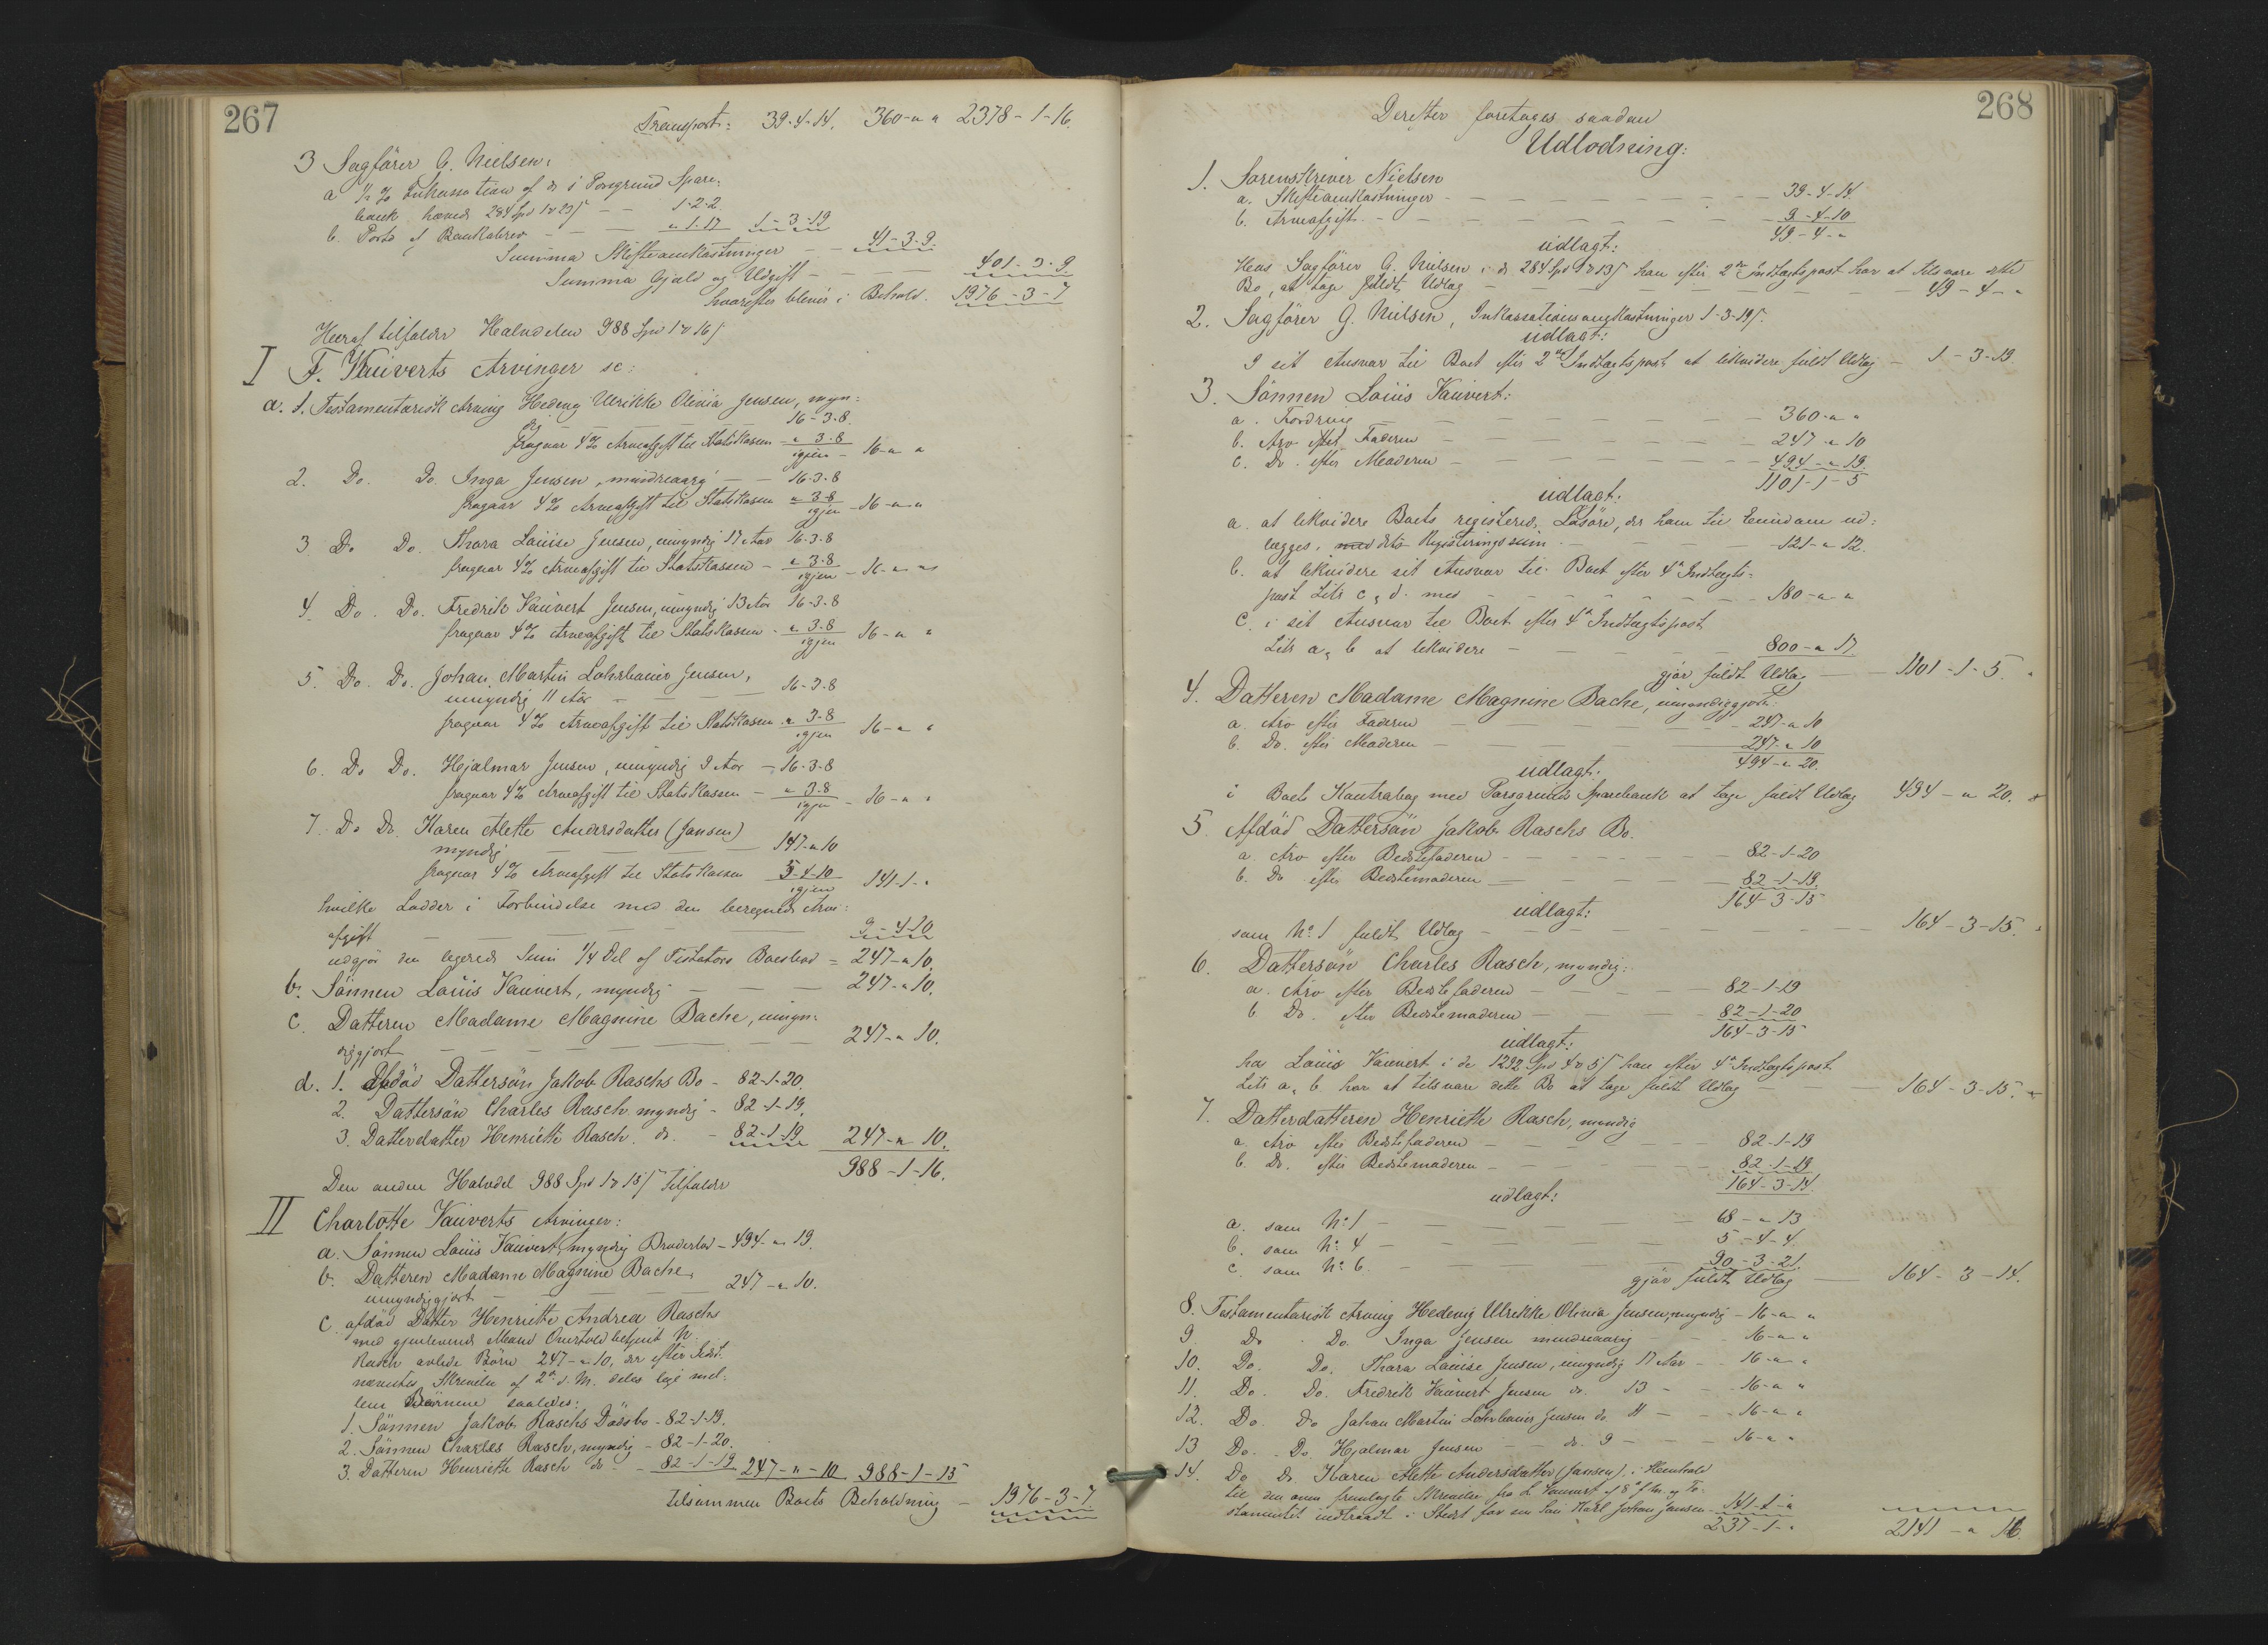 267
Transport: 39-4-14. 360-"-" 2378-1-16.
3 Sagförer G. Nielsen:
a ½ % Inkassation af de i Porsgrund Spare-
bank hævede 284 Spd 1 ₮ 23 ß — — 1-2-2.
b. Porto af Bankobrev — — — "-1-17 1-3-19
Summa Skifteomkostninger — — 41-3-9.
Summa Gjæld og Udgift — — — 401-3-9
hvorefter blever i Behold. 1976-3-7
Heraf tilfalder Halvdelen 988 Spd 1 ₮ 16 ß
I F. Vauverts Arvinger sc:
a. 1. Testamentarisk Arving Hedevig Ulrikke Olivia Jensen, myn-
dig — — — 16-3-8.
fragaar 4% Arveafgift til Statskassen — "-3-8
igjen — 16-"-"
2. Do. Do. Inga Jensen, mindreaarig — — 16-3-8
fragaar 4% Arveafgift til Statskassen "-3-8
igjen — 16-"-"
3. Do Do. Thora Louise Jensen, umyndig 17 Aar 16-3-8
fragaar 4% Arveafgift til Statskassen — "-3-8
igjen — 16-"-"
4. Do. Do. Fredrik Vauvert Jensen, umyndig 13 Aar 16-3-8
fragaar 4% Arveafgift til Statskassen - "-3-8
igjen 16-"-"
5. Do. Do. Johan Martin Lohrbauer Jensen,
umyndig 11 Aar — — — 16-3-8
fragaar 4% Arveafgift til Statskassen "-3-8
igjen 16-"-"
6. Do Do. Hjalmar Jensen, umyndig 9 Aar — 16-3-8
fragaar 4% Arveafgift til Statskassen — "-3-8
igjen — 16-"-"
7. Do Do. Karen Alette Andersdatter (Jansen)
myndig — — — 147-"-10
fragaar 4% Arveafgift til Statskassen 5-4-10
igjen 141-1-"
hvilke Lodder i Forbindelse med den beregnede Arve-
afgift — — — — 9-4-10
udgjör den legerede Sum 1/4 Del af Testators Boeslod = 247-"-10.
b. Sönnen Louis Vauvert, myndig — — — 247-"-10.
c. Datteren Madame Magnine Bache, umyn-
diggjort — — — — — — 247-"-10.
d. 1. Afdöd Dattersön Jakob Raschs Bo - 82-1-20.
2. Dattersön Charles Rasch myndig - 82-1-19.
3. Datterdatter Henriette Rasch. do. - 82-1-19 247-"-10.
988-1-16.
Den anden Halvdel 988 Spd 1 ₮ 15 ß tilfalder
II Charlotte Vauverts Arvinger:
a. Sönnen Louis Vauvert, myndig Broderlod - 494-"-19.
b. Datteren Madame Magnine Bache,
umyndiggjort — — — 247-"-10.
c. afdöd Datter Henriette Andrea Raschs
med gjenlevende Mand Overtoldbetjent N.
Rasch avlede Börn 247-"-10, der efter sidst-
nævntes Skrivelse af 2den d. M. deles lige mel-
lem Börnene saaledes:
1. Sönnen Jakob Raschs Dödsbo - 82-1-19.
2. Sönnen Charles Rasch, myndig - 82-1-20.
3. Datteren Henriette Rasch do - 82-1-19 247-"-10 988-1-15
tilsammen Boets Beholdning — 1976-3-7
268
Derefter foretages saadan
Udlodning:
1. Sorenskriver Nielsen
a. Skifteomkostninger — — — 39-4-14.
b. Arveafgift — — — 9-4-10
49-4-"
udlagt:
Hos Sagförer G. Nielsen i de 284 Spd 1 ₮ 23 ß han efter 2den Indtægtspost har at tilsvare dette
Bo, at tage fuldt Udlæg — — — 49-4-"
2. Sagförer G. Nielsen, Inkassationsomkostninger 1-3-19 ß.
udlagt:
I sit Ansvar til Boet efter 2den Indtægtspost at likvidere fuldt Udlæg — 1-3-19
3. Sönnen Louis Vauvert:
a. Fordring — — — 360-"-"
b. Arv efter Faderen — — — 247-"-10
c. Do. efter Moderen — — — 494-"-19.
1101-1-5
udlagt:
a. at likvidere Boets registerede Lösöre, der ham til Eiendom ud-
lægges, med dets Registeringssum — — — 121-"-12.
b. at likvidere sit Ansvar til Boet efter 4de Indtægts-
post Litr c & d. med — — — 180-"-"
c. i sit Ansvar til Boet efter 4de Indtægtspost
Litr a & b at likvidere — — — 800-"-17
gjör fuldt Udlæg — 1101-1-5.
4. Datteren Madame Magnine Bache, umyndiggjort
a. Arv efter Faderen — — — 247-"-10
b. Do. efter Moderen — — — 247-"-10
494-"-20.
udlagt:
i Boets Kontrabog med Porsgrunds Sparebank at tage fuldt Udlæg 494-"-20.
5. Afdöd Dattersön Jakob Raschs Bo.
a. Arv efter Bedstefaderen — — — 82-1-20
b. Do efter Bedstemoderen — — — 82-1-19.
164-3-15
udlagt:
som No. 1 fuldt Udlæg — — — 164-3-15.
6. Dattersön Charles Rasch, myndig:
a. Arv efter Bedstefaderen — — — 82-1-19
b. Do. efter Bedstemoderen — — — 82-1-20
164-3-15
udlagt:
hos Louis Vauvert i de 1292 Spd 4 ₮ 5 ß han efter 4de Indtægtspost
Litr a & b har at tilsvare dette Bo at tage fuldt Udlæg — — 164-3-15.
7. Datterdatteren Henriette Rasch, myndig
a. Arv efter Bedstefaderen — — — 82-1-19
b. Do. efter Bedstemoderen — — — 82-1-19
164-3-14.
udlagt:
a. som No. 1 — — — 68-"-13
b. som No. 4 — — — 5-4-4.
c. som No. 6. — — — 90-3-21.
gjör fuldt Udlæg — 164-3-14.
8. Testamentarisk Arving Hedevig Ulrikke Olivia Jensen, myndig — 16-"-"
9. Do Do. Inga Jensen mindreaarig — — 16-"-"
10. Do. Do. Thora Louise Jensen, umyndig 17 Aar — 16-"-"
11. Do. Do. Fredrik Vauvert Jensen do. 13 — — 16-"-"
12. Do. Do Johan Martin Lohrbauer Jensen do. 11 — — 16-"-"
13 Do. Do. Hjalmar Jensen — do. 9 — — 16-"-"
14. Do do. Karen Alette Andersdatter (Jansen), i Henhold
til den oven fremlagte Skrivelse fra L Vauvert af 8de f. M. og Te-
stamentet indtraadt i Stedet for sin Sön Karl Johan Jansen — 141-1-"
237-1-" 2141-"-16.